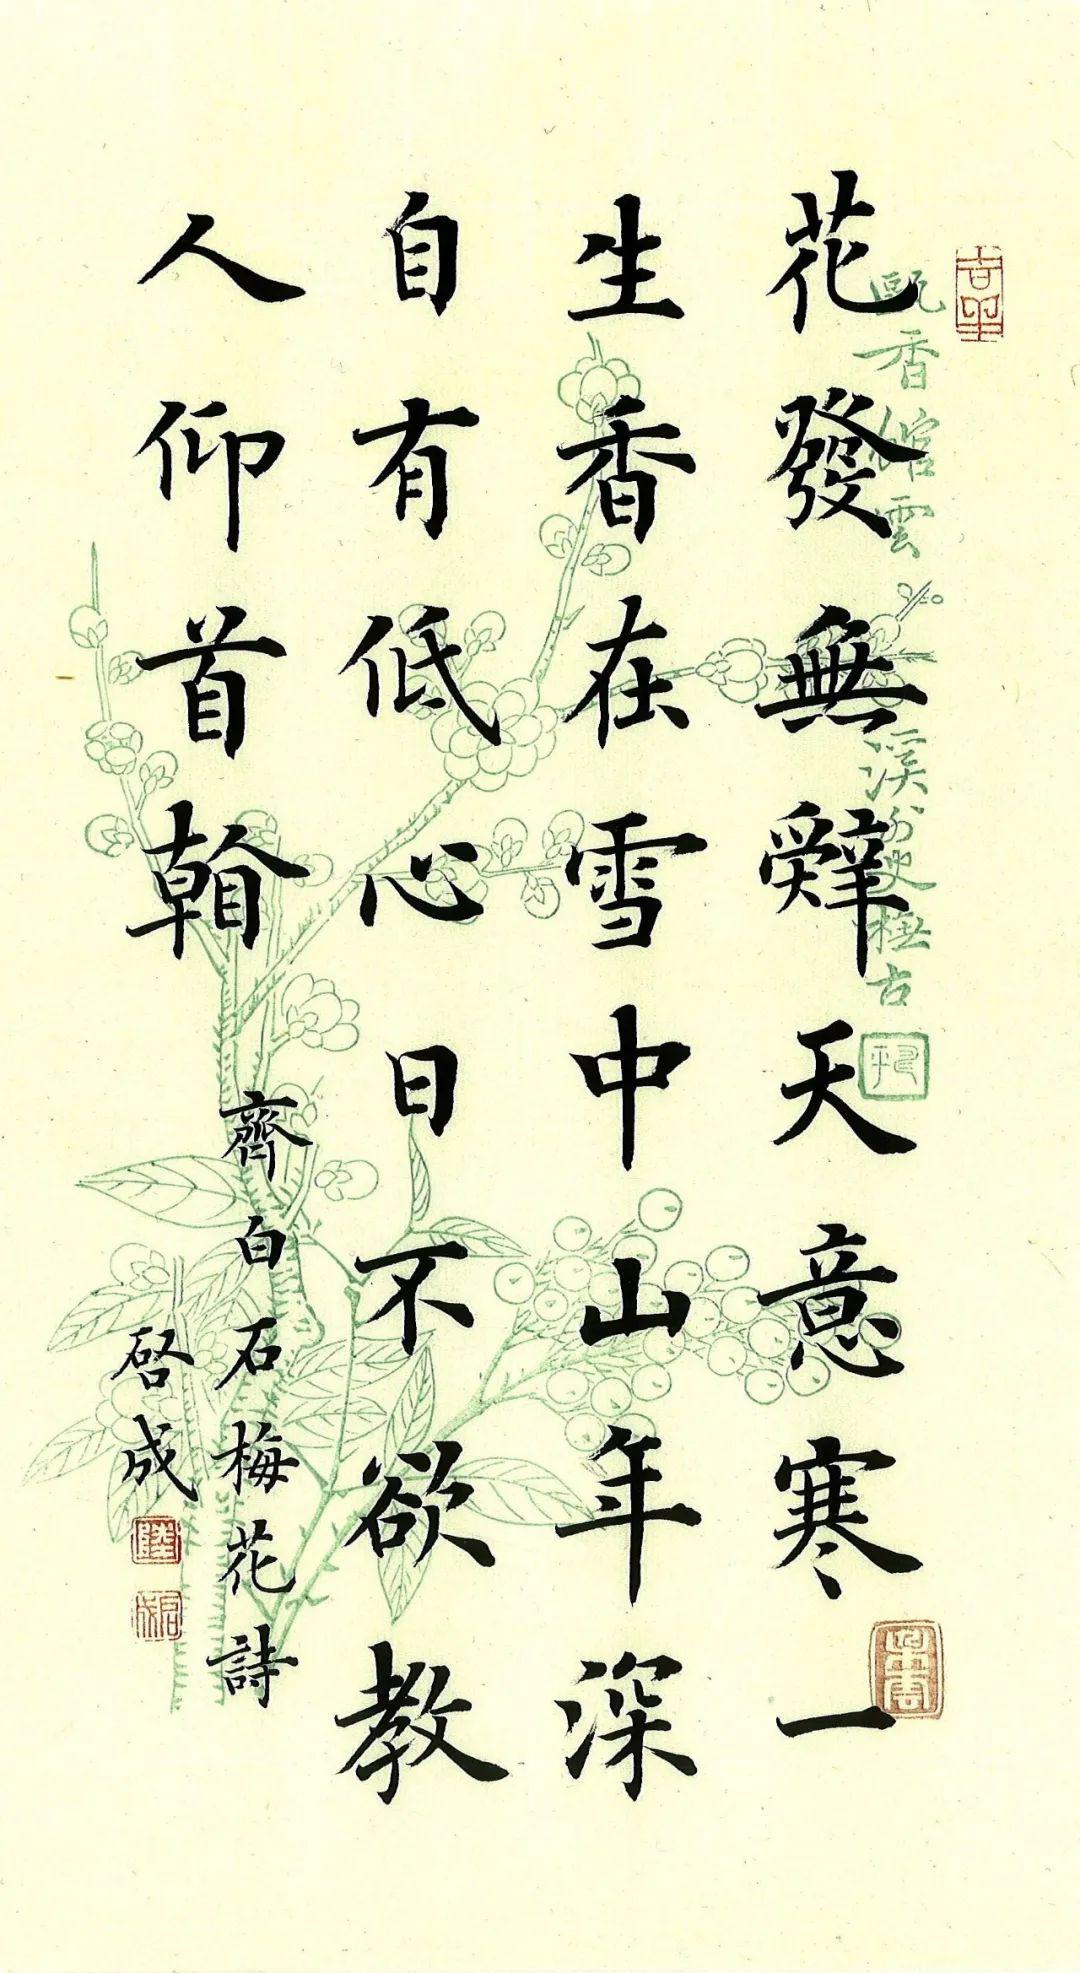 甌香館雲溪外史橅古
花發無辤天意寒一
生香在雪中山年深
自有低心日不欲教
人仰首看
齊白石梅花詩
啓成